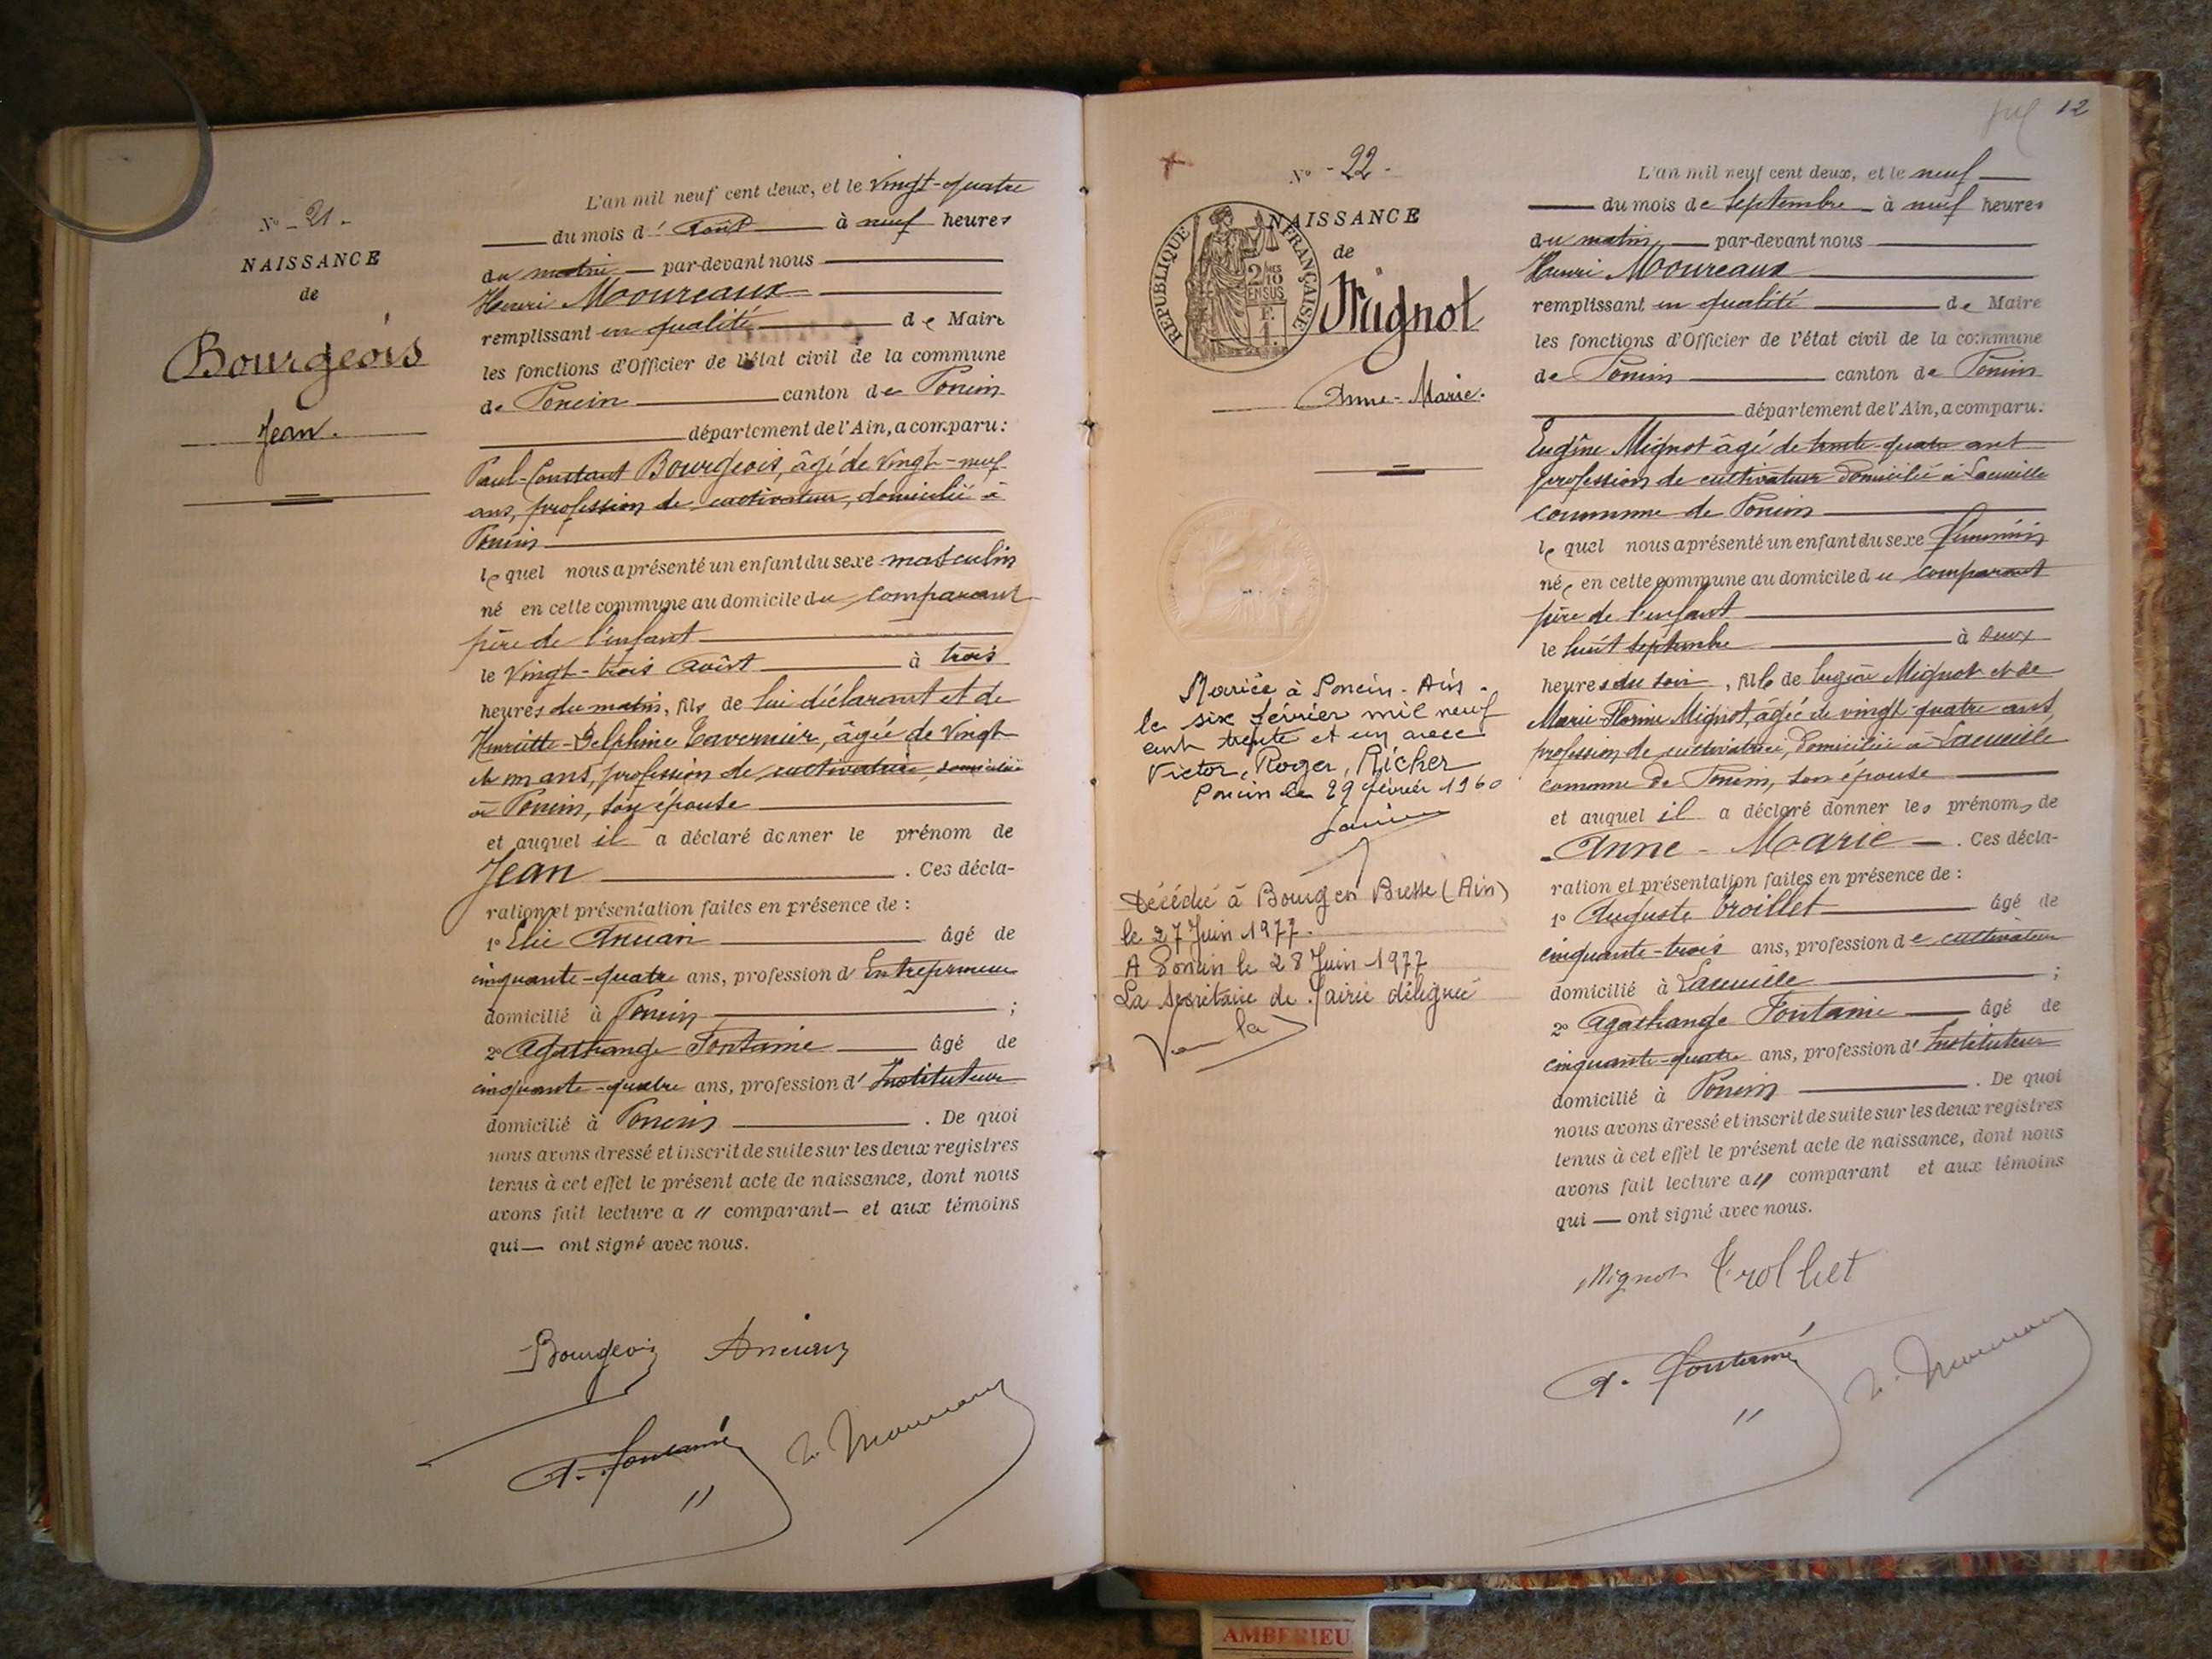 N° - 21 -
NAISSANCE
de
Bourgeois
Jean.
L'an mil neuf cent deux, et le vingt-quatre
du mois d' Août à neuf heures
du matin par-devant nous
Henri Moureaux
remplissant en qualité de Maire
les fonctions d'Officier de l'état civil de la commune
de Poncin canton de Poncin
département de l'Ain, a comparu:
Paul-Constant Bourgeois, âgé de vingt-neuf
ans, profession de cultivateur, domicilié à
Poncin
le quel nous a présenté un enfant du sexe masculin
né en cette commune au domicile du comparant
père de l'enfant
le vingt-trois août à trois
heures du matin, fils de lui déclarant et de
Henriette-Delphine Tavernier, âgée de vingt
et un ans, profession de cultivatrice, domiciliée
à Poncin, son épouse
et auquel il a déclaré donner le prénom de
Jean . Ces décla-
ration et présentation faites en présence de :
1° Elie âgé de
cinquante-quatre ans, profession d' Entrepreneur
domicilié à Poncin ;
2° Agathange Fontaine âgé de
cinquante-quatre ans, profession d' Instituteur
domicilié à Poncin . De quoi
nous avons dressé et inscrit de suite sur les deux registres
tenus à cet effet le présent acte de naissance, dont nous
avons fait lecture a " comparant— et aux témoins
qui — ont signé avec nous.
Bourgeois
A. Fontaine
H. Moureaux
12
N° - 22 -
NAISSANCE
de
RÉPUBLIQUE FRANÇAISE
2/10 EN SUS
1 F.
Mignot
Anne-Marie.
Mariée à Poncin - Ain -
le six février mil neuf
cent trente et un avec
Victor, Roger, Richer
Poncin le 29 février 1960
Décédée à Bourg en Bresse (Ain)
le 27 Juin 1977.
A Poncin le 28 Juin 1977
La Secrétaire de Mairie déléguée
L'an mil neuf cent deux, et le neuf
du mois de Septembre à neuf heures
du matin, par-devant nous
Henri Moureaux
remplissant en qualité de Maire
les fonctions d'Officier de l'état civil de la commune
de Poncin canton de Poncin
département de l'Ain, a comparu:
Eugène Mignot âgé de trente-quatre ans
profession de cultivateur domicilié à Lacueille
commune de Poncin
le quel nous a présenté un enfant du sexe féminin
née en cette commune au domicile du comparant
père de l'enfant
le huit septembre à deux
heures du soir, fille de Eugène Mignot et de
Marie-Florine Mignot, âgée de vingt-quatre ans,
profession de cultivatrice, domiciliée à Lacueille
commune de Poncin, son épouse
et auquel il a déclaré donner les prénoms de
Anne - Marie . Ces décla-
ration et présentation faites en présence de :
1° Auguste Trolliet âgé de
cinquante-trois ans, profession de cultivateur
domicilié à Lacueille ;
2° Agathange Fontaine âgé de
cinquante-quatre ans, profession d' Instituteur
domicilié à Poncin . De quoi
nous avons dressé et inscrit de suite sur les deux registres
tenus à cet effet le présent acte de naissance, dont nous
avons fait lecture a " comparant et aux témoins
qui — ont signé avec nous.
Mignot Trolliet
A. Fontaine
H. Moureaux
AMBERIEU